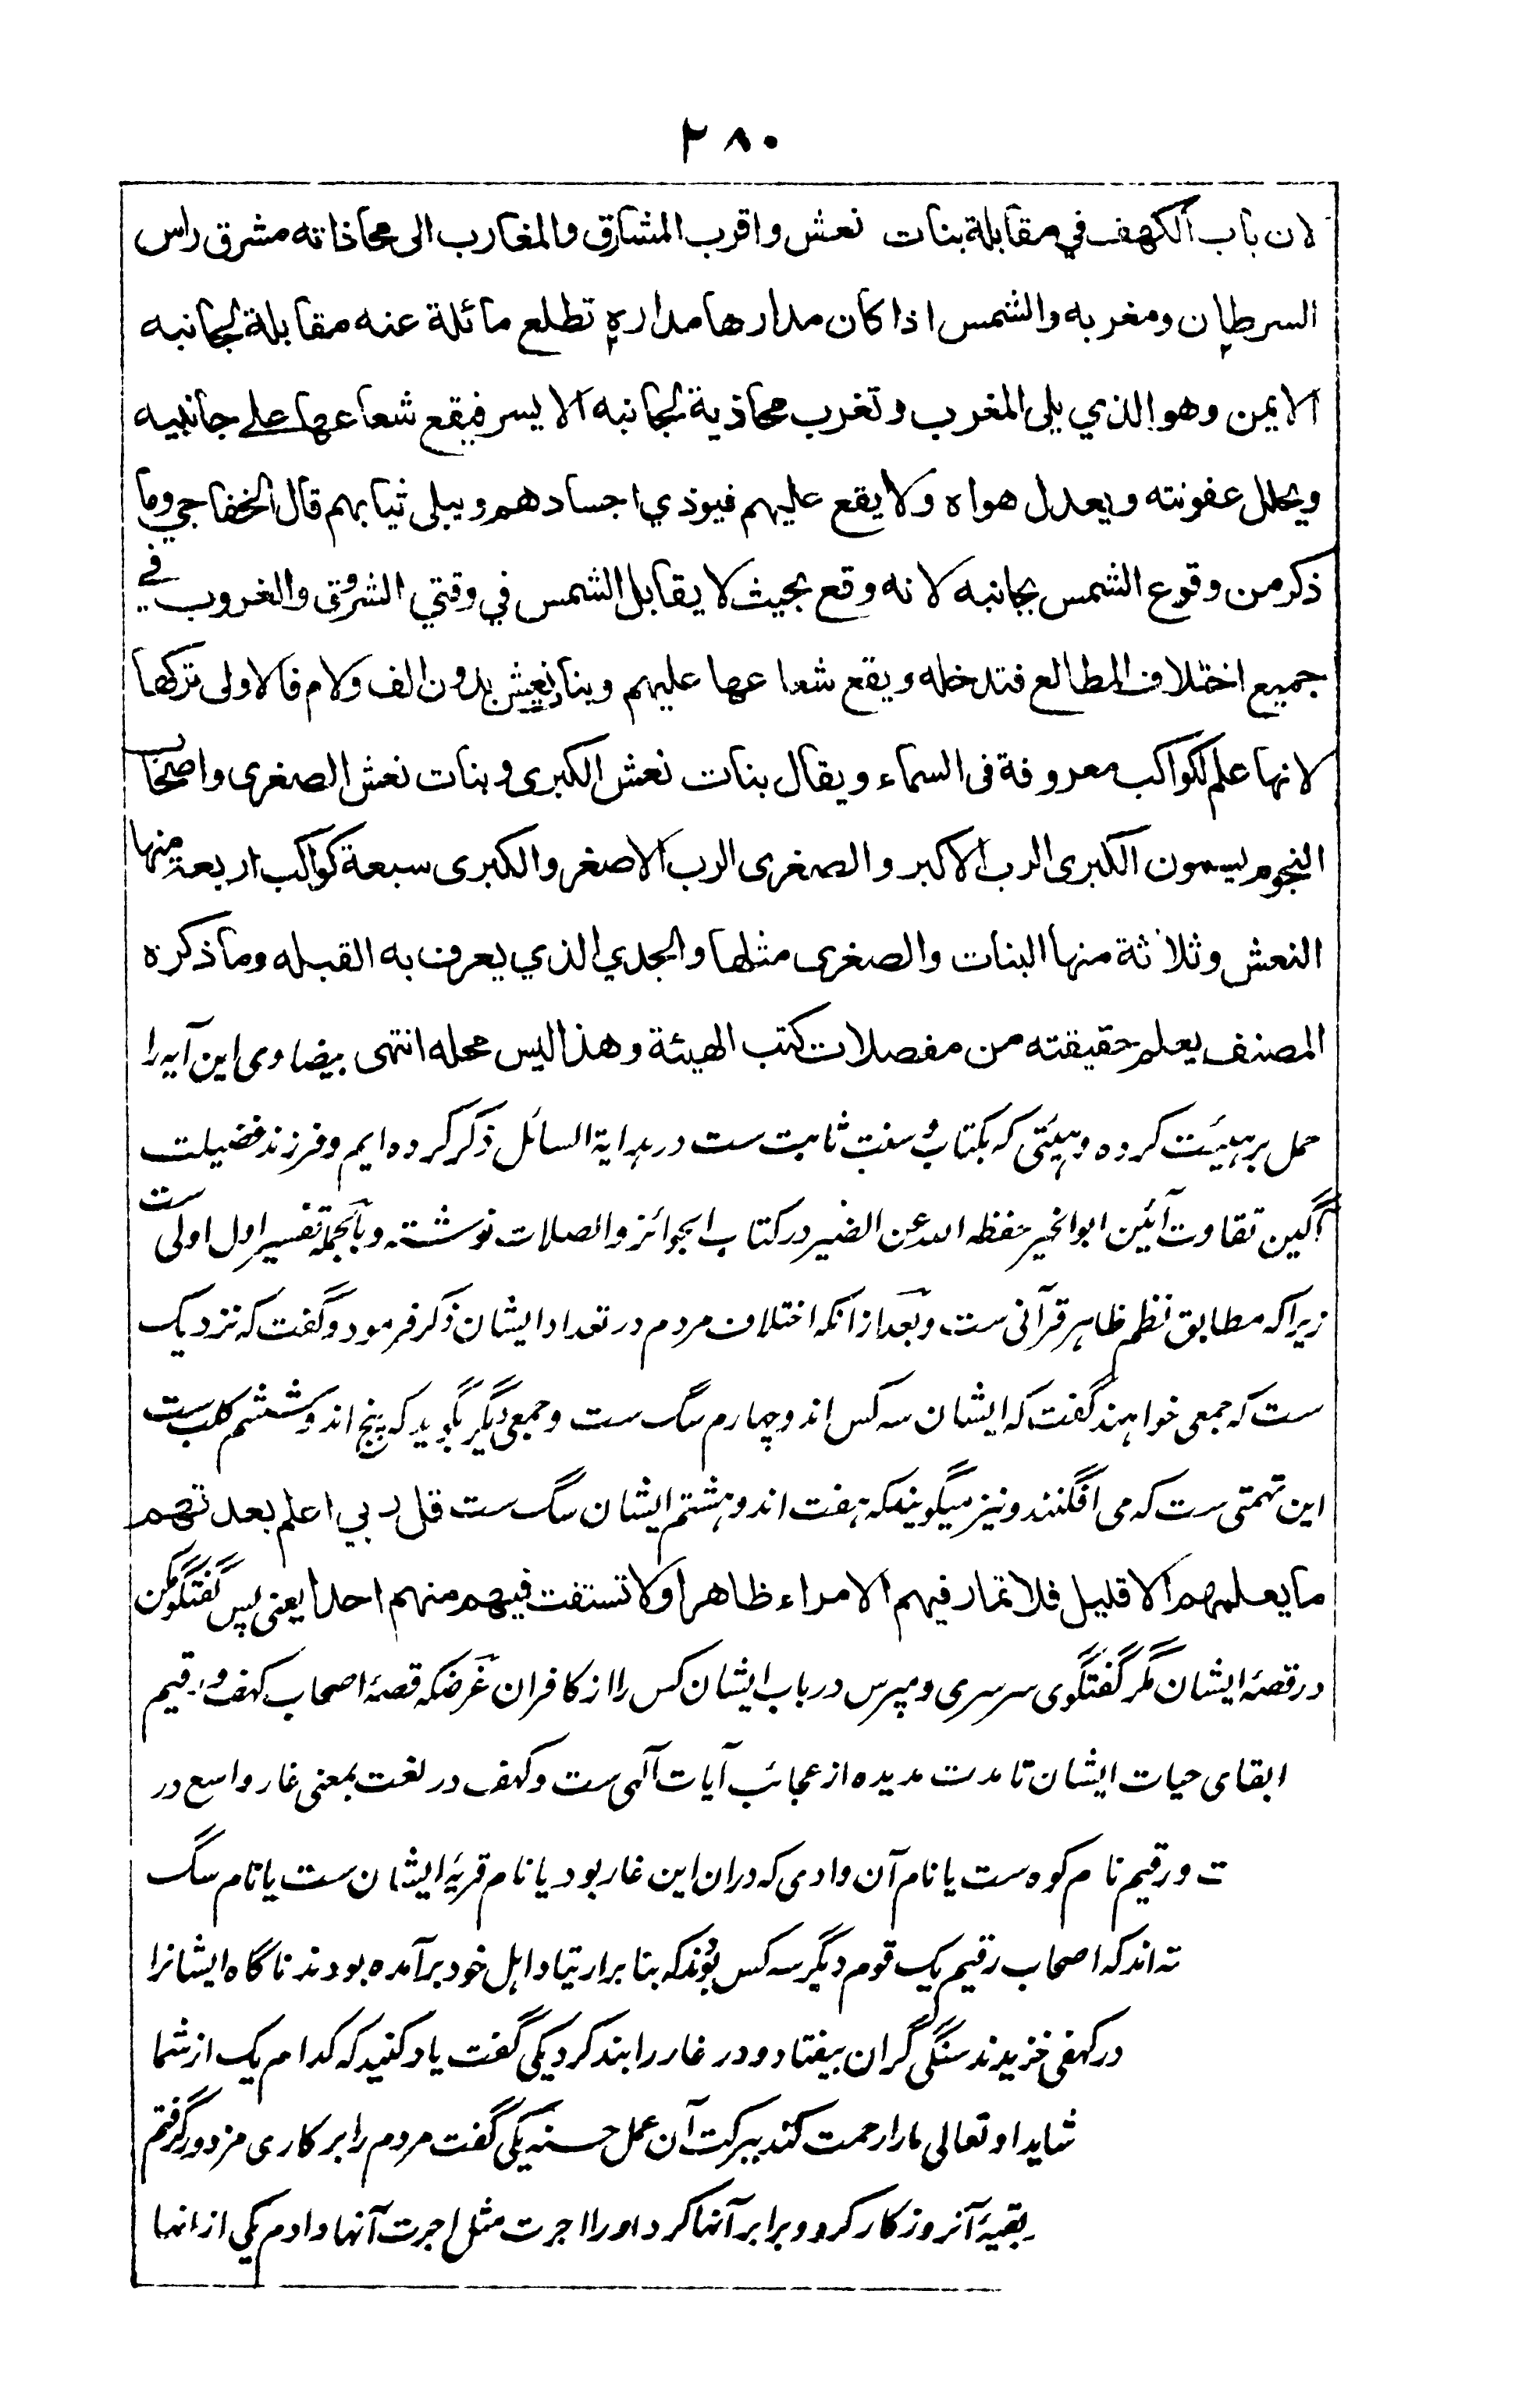 ۲۸۰
لان باب الكهف في مقابلة بنات نعش واقرب المشارق والمغارب الى محاذاته مشرق راس
السرطان ومغربه والشمس اذا كان مدارها مداره تطلع مائلة عنه مقابلة لجانبه
الايمن وهو الذي يلى المغرب وتغرب محاذية لجانبه الايسر فيقع شعاعها على جانبيه
ويحلل عفونته ويعدل هواه ولا يقع عليهم فيوذي اجسادهم ويبلى ثيابهم قال الخفاجي وما
ذكر من وقوع الشمس بجانبه لانه وقع بحيث لا يقابل الشمس في وقتي الشروق والغروب في
جميع اختلاف المطالع فتدخله ويقع شعاعها عليهم وبنات نعش بدون الف ولام فالاولى تركها
لانها علم لكواكب معروفة فى السماء ويقال بنات نعش الكبرى وبنات نعش الصغرى واصحاب
النجوم يسمون الكبرى الدب الاكبر والصغرى الدب الاصغر والكبرى سبعة كواكب اربعة منها
النعش وثلاثة منها البنات والصغرى مثلها والجدي الذي يعرف به القبله وما ذكره
المصنف يعلم حقيقته من مفصلات كتب الهيئة وهذا ليس محله انتهى بيضاوى اين آيه را
حمل بر هيئت كرده وهيئتى كه بكتاب و سنت ثابت ست در هداية السائل ذكر كرده ايم و فرزند فضيلت
آگين تقاوت آئين ابو الخير حفظه الله عن الضير در كتاب الجوائز والصلات نوشته و بالجمله تفسير اول اولى ست
زيرا كه مطابق نظم ظاهر قرآنى ست و بعد ازانكه اختلاف مردم در تعداد ايشان ذكر فرمود و گفت كه نزديك
ست كه جمعى خواهند گفت كه ايشان سه كس اند و چهارم سگ ست و جمعى ديگر بگويد كه پنج اند و ششم كلب ست
اين تهمتى ست كه مى افگنند و نيز ميگويند كه هفت اند و هشتم ايشان سگ ست قل ربي اعلم بعدتهم
ما يعلمهم الا قليل فلا تمار فيهم الا مراء ظاهرا ولا تستفت فيهم منهم احدا يعنى پس گفتگو مكن
در قصۀ ايشان مگر گفتگوى سرسرى و مپرس در باب ايشان كس را از كافران غرضكه قصۀ اصحاب كهف و رقيم
ابقاى حيات ايشان تا مدت مديده از عجائب آيات آلهى ست و كهف در لغت بمعنى غار واسع در
ت و رقيم نام كوه ست يا نام آن وادى كه دران اين غار بود يا نام قريۀ ايشان ست يا نام سگ
ته اند كه اصحاب رقيم يك قوم ديگر سه كس بودند كه بنا بر ارتياد اهل خود برآمده بودند ناگاه ايشانرا
در كهفى خزيدند سنگى گران بيفتاد و در غار را بند كرد يكى گفت ياد كنيد كه كدام يك از شما
شايد او تعالى ما را رحمت كند ببركت آن عمل حسنه يكى گفت مردم را بر كارى مزدور گرفتم
بقيۀ آنروز كار كرد و برابر آنها كرد او را اجرت مثل اجرت آنها دادم يكى از انها